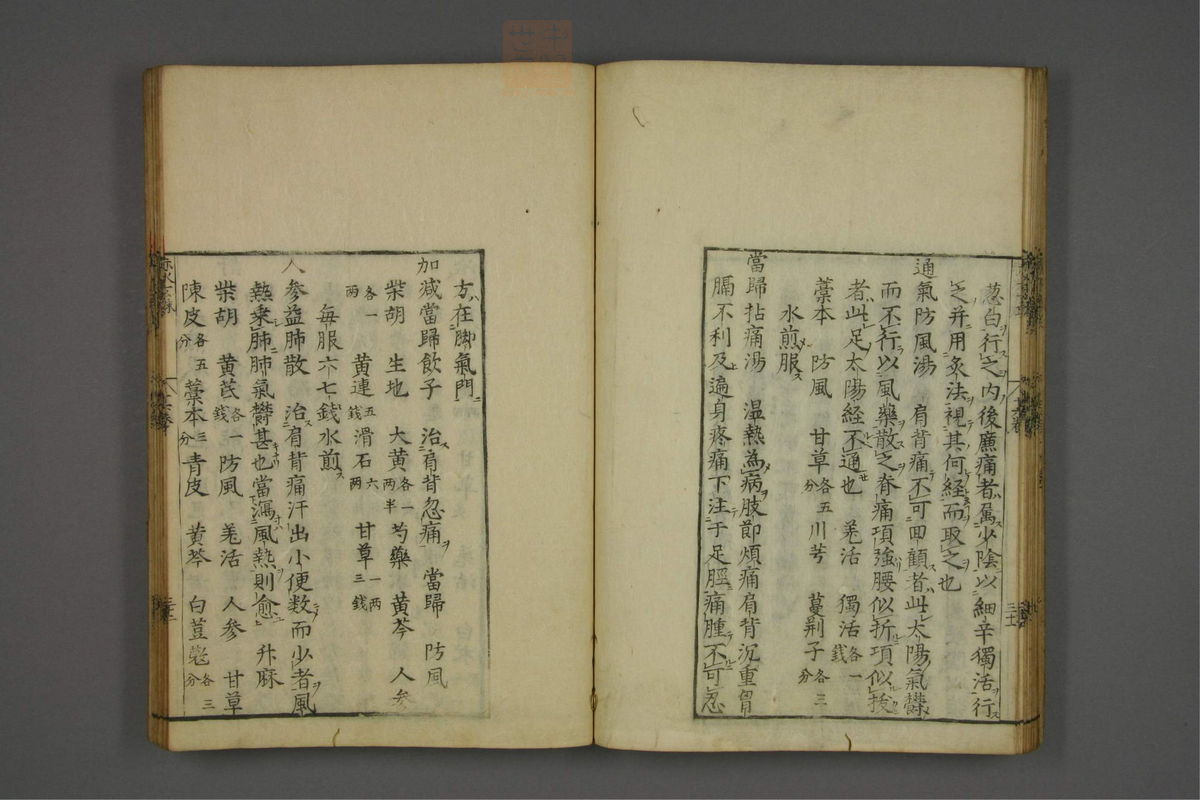 葱白行之内後廉痛者属少陰以細辛獨活行
之并用灸法視其何経而取之也
通氣防風湯　肩背痛不可回顧者此太陽氣欝
而不行以風藥散之脊痛項強腰似折項似拔
者此足太陽経不通也　羌活　獨活各一錢
藁本　防風　甘草各五分川芎　蔓荆子各三分
水煎服
當歸拈痛湯　温熱為病肢節煩痛肩背沉重胷
膈不利及遍身疼痛下注于足脛痛腫不可忍
方在脚氣門
加减當歸飲子　治肩背忽痛　當歸　防風
柴胡　生地　大黄各一两半芍藥　黄芩　人参
各一两　黄連五錢滑石六两　甘草一两三錢
每服六七錢水煎
人参益肺散　治肩背痛汗出小便数而少者風
熱乘肺肺氣欝甚也當瀉風熱則愈　升麻
柴胡　黄芪各一錢防風　羌活　人参　甘草
陳皮各五分藁本三分青皮　黄芩　白荳蔻各三分